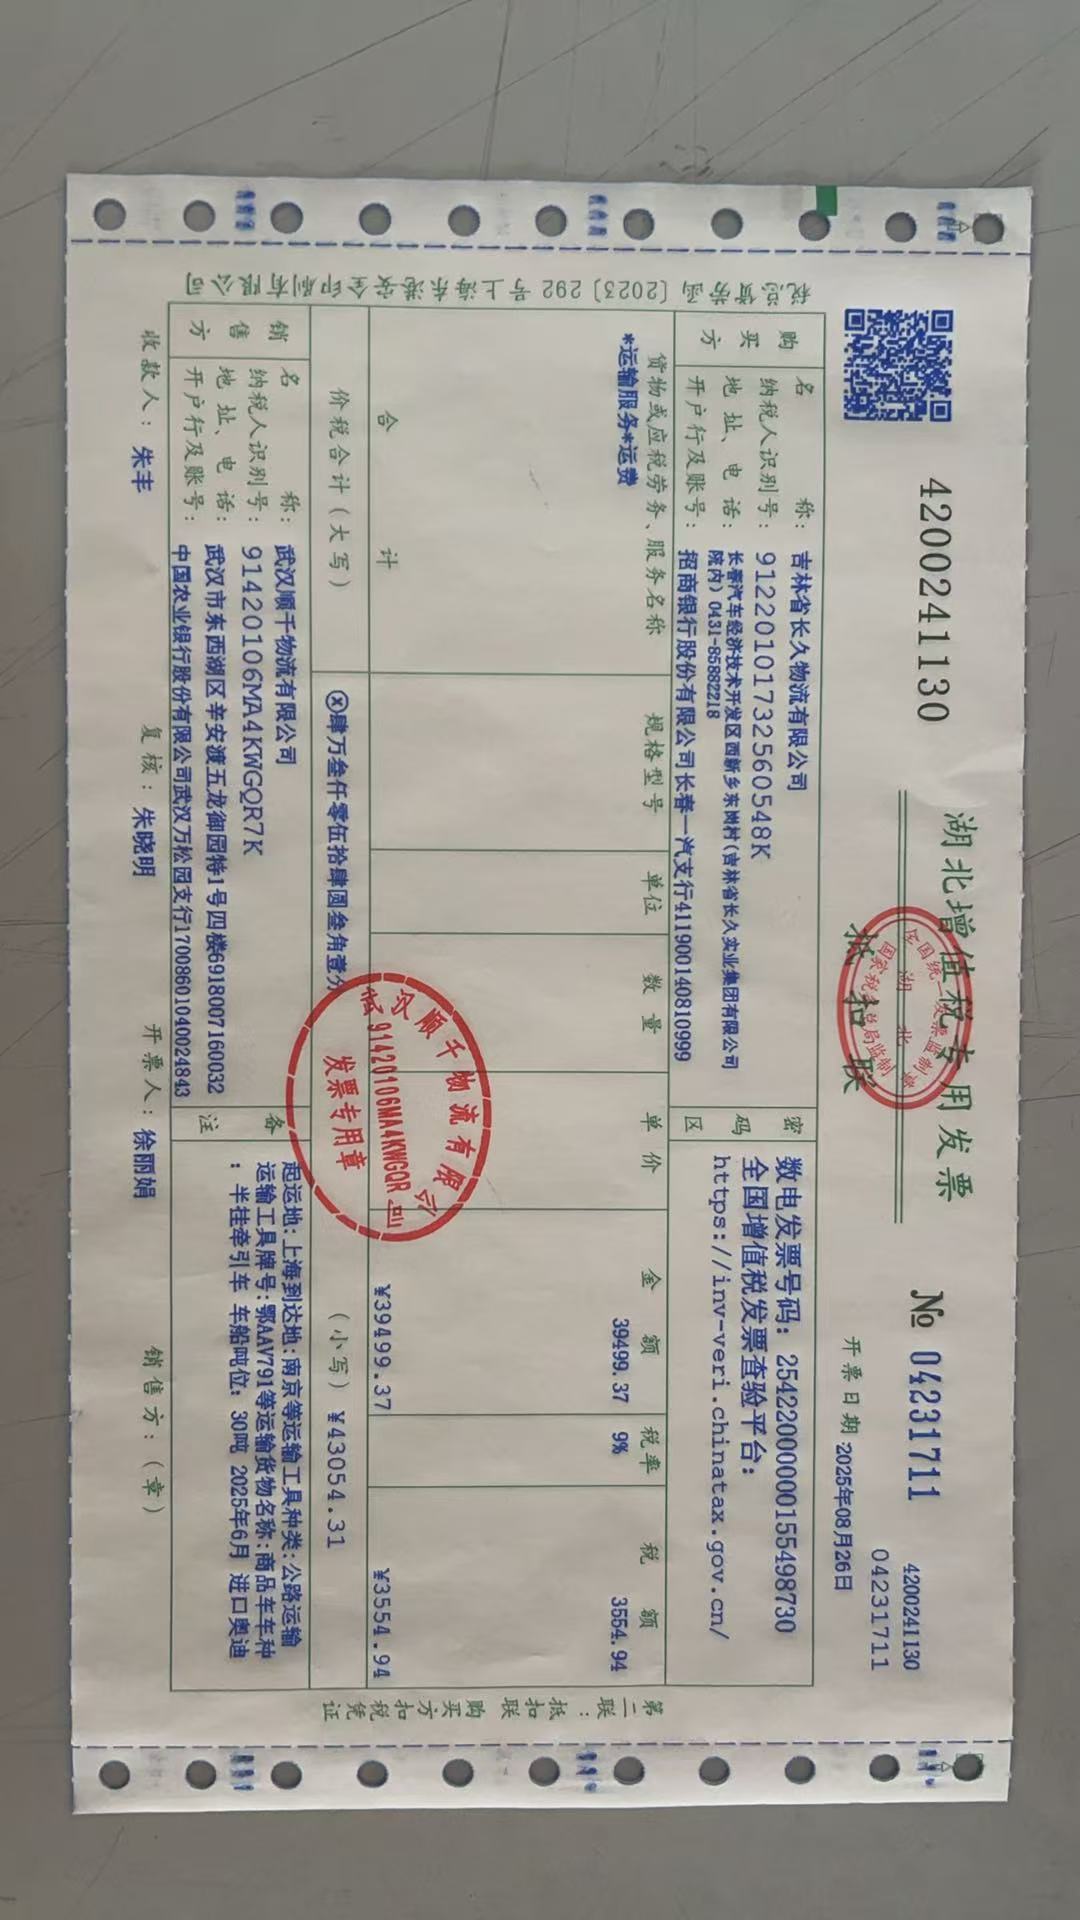 4200241130
湖北增值税专用发票
抵扣联
全国统一发票监制章
湖北
国家税务总局监制
№ 04231711
4200241130
04231711
开票日期 2025年08月26日
税总货劳函〔2023〕292号上海东港安全印刷有限公司
购买方
名称: 吉林省长久物流有限公司
纳税人识别号: 91220101732560548K
地址、电话: 长春汽车经济技术开发区西新乡东岗村(吉林省长久实业集团有限公司
院内) 0431-85882218
开户行及账号: 招商银行股份有限公司长春一汽支行411900140810999
密码区
数电发票号码: 25422000000155498730
全国增值税发票查验平台:
https://inv-veri.chinatax.gov.cn/
货物或应税劳务、服务名称 规格型号 单位 数量 单价 金额 税率 税额
*运输服务*运费 39499.37 9% 3554.94
合计 ¥39499.37 ¥3554.94
价税合计(大写) ⊗肆万叁仟零伍拾肆圆叁角壹分 (小写) ¥43054.31
销售方
名称: 武汉顺千物流有限公司
纳税人识别号: 91420106MA4KWGQR7K
地址、电话: 武汉市东西湖区辛安渡五龙御园特1号四楼6918007160032
开户行及账号: 中国农业银行股份有限公司武汉万松园支行17008601040024843
备注
起运地:上海到达地:南京等运输工具种类:公路运输
运输工具牌号:鄂AAV791等运输货物名称:商品车车种
: 半挂牵引车 车船吨位: 30吨 2025年6月 进口奥迪
武汉顺千物流有限公司
91420106MA4KWGQR
发票专用章
收款人: 朱丰 复核: 朱晓明 开票人: 徐丽娟 销售方:(章)
第二联:抵扣联 购买方扣税凭证